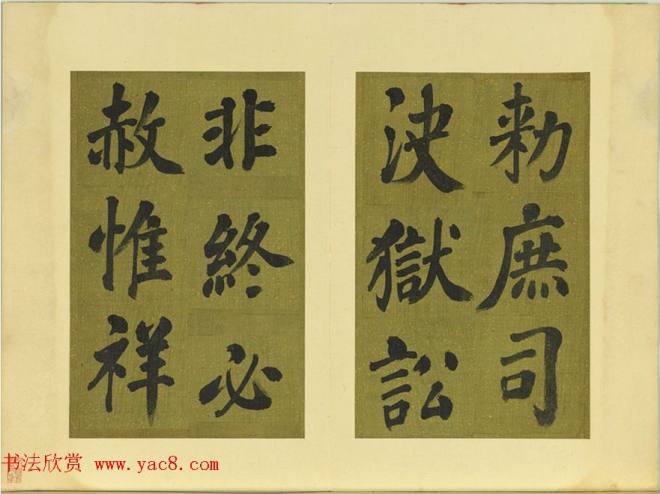 勑庶司
決獄訟
非終必
赦惟祥
书法欣赏 www.yac8.com